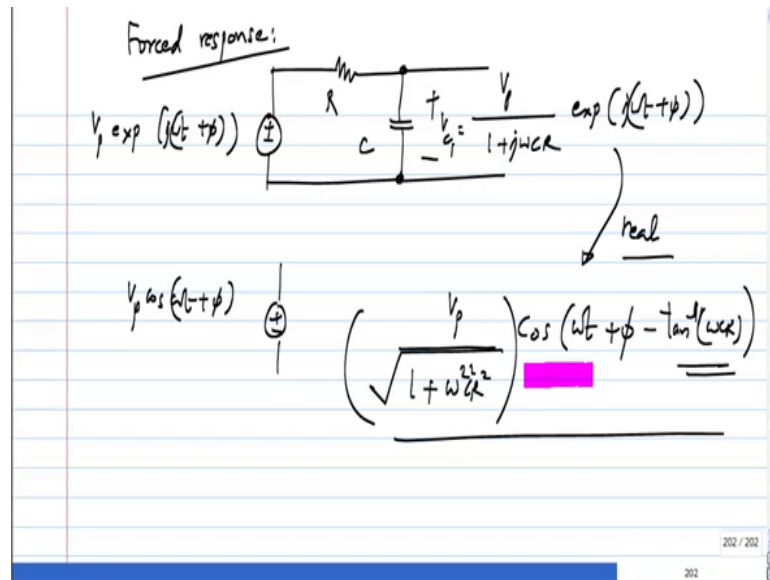 Forced response:
R
V_p exp (j(ωt + φ))
±
C
+
V_{c_1} =
−
V_p / (1 + jωCR) exp (j(ωt + φ))
real
V_p cos (ωt + φ)
±
(V_p / √(1 + ω²C²R²)) cos (ωt + φ − tan⁻¹(ωCR))
202 / 202
202